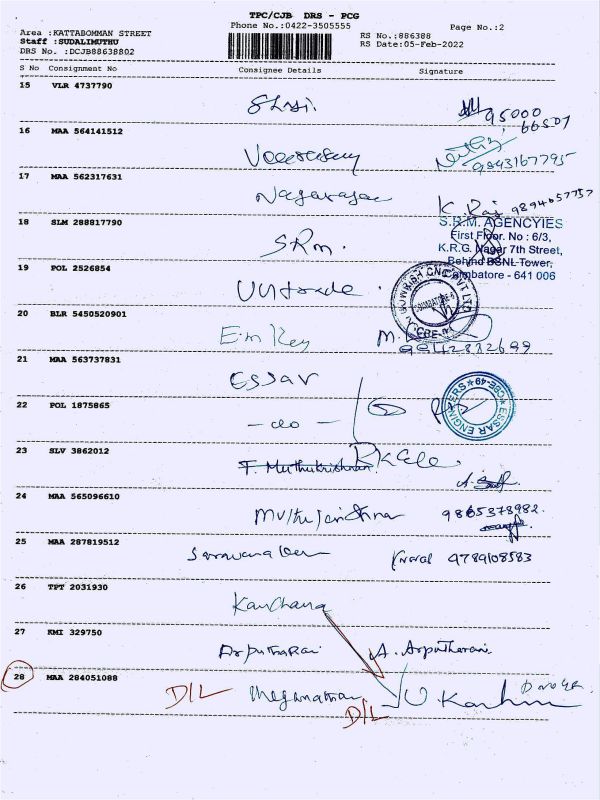 TPC/CJB DRS - PCG
Phone No.:0422-3505555
Page No.:2
Area :KATTABOMMAN STREET
Staff :SUDALIMUTHU
DRS No. :DCJB88638802
RS No.:886388
RS Date:05-Feb-2022
S No Consignment No Consignee Details Signature
15 VLR 4737790
95000
66507
16 MAA 564141512
9843167795
17 MAA 562317631
Nagarajan K. Raj 9894657757
18 SLM 288817790
SRM.
S.R.M. AGENCYIES
First Floor. No : 6/3,
K.R.G. Nagar 7th Street,
Behind BSNL Tower,
Coimbatore - 641 006
19 POL 2526854
20 BLR 5450520901
Em Key M.
9942332699
21 MAA 563737831
ESSAR
ESSAR ENGINEERS CBE-49
22 POL 1875865
- do -
23 SLV 3862012
T. Muthukrishnan
24 MAA 565096610
Muthukrishna 9865378982.
25 MAA 287819512
9789108583
26 TPT 2031930
Kanchana
27 KMI 329750
Arputharani A. Arputharani
28 MAA 284051088
D/L Meganathan
D/L